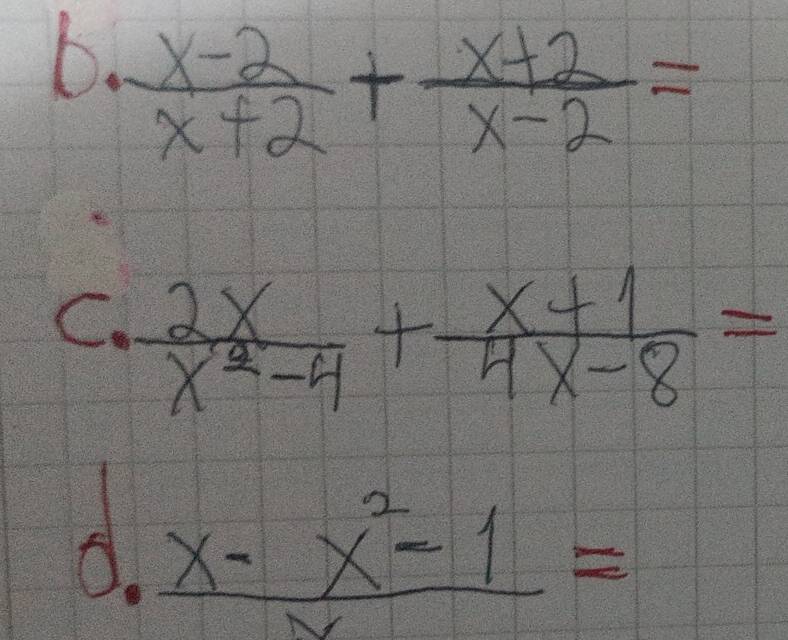 b. x-2 + x+2 =
x+2 x-2
c. 2x + x+1 =
x²-4 4x-8
d. x- x²-1 =
x